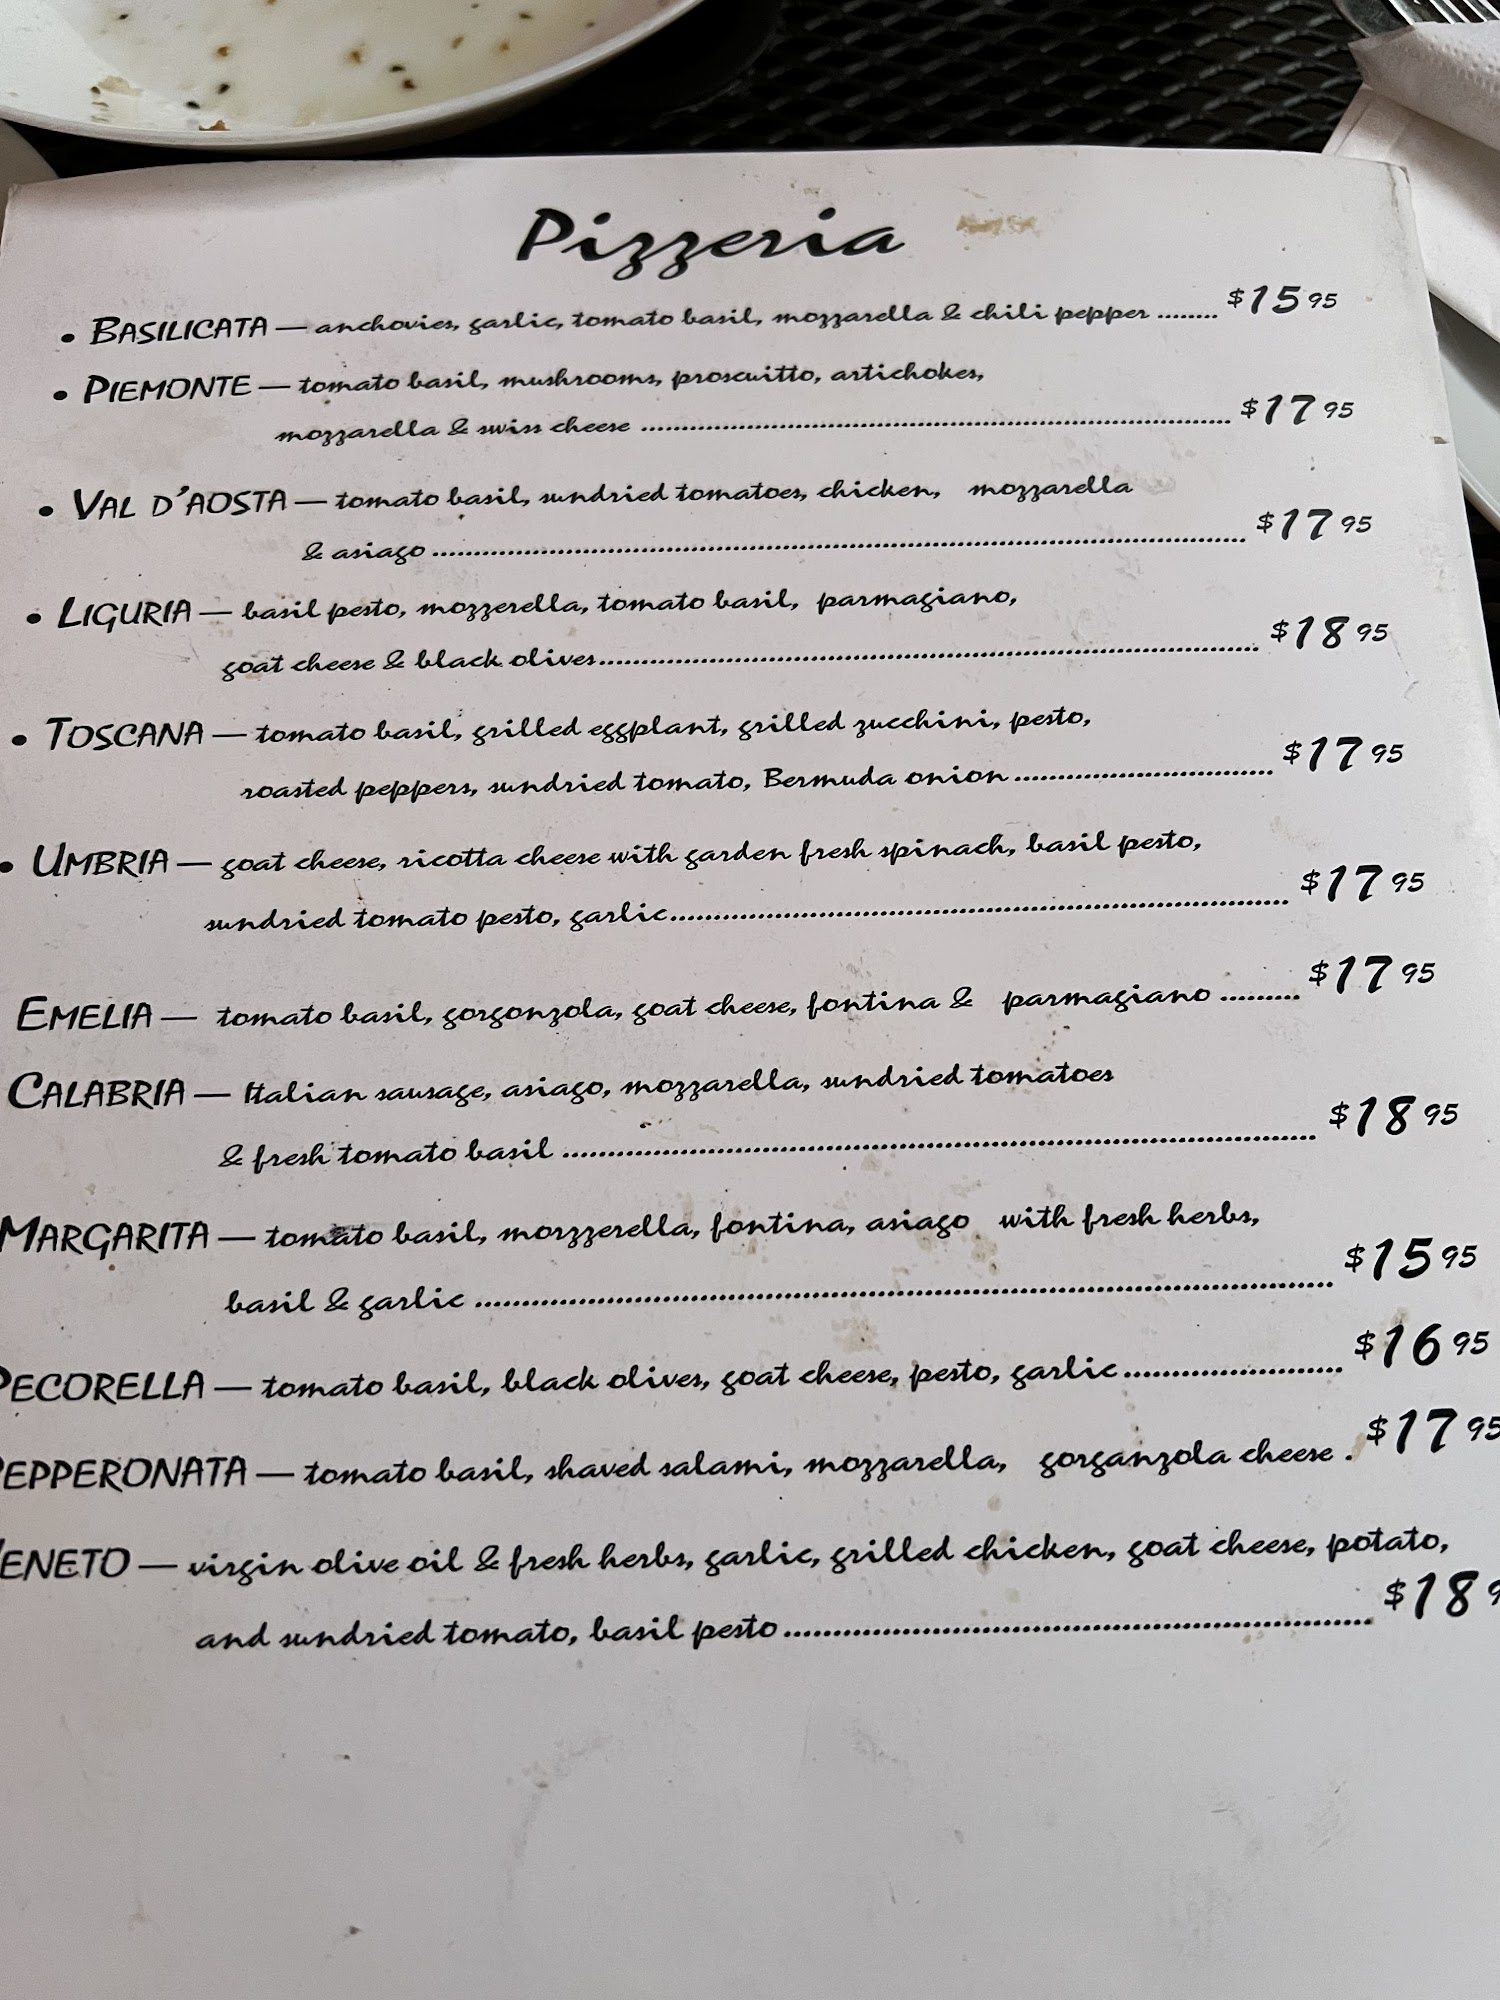 Pizzeria
• BASILICATA — anchovies, garlic, tomato basil, mozzarella & chili pepper ........ $15 95
• PIEMONTE — tomato basil, mushrooms, proscuitto, artichokes,
mozzarella & swiss cheese ........ $17 95
• VAL D'AOSTA — tomato basil, sundried tomatoes, chicken, mozzarella
& asiago ........ $17 95
• LIGURIA — basil pesto, mozzerella, tomato basil, parmagiano,
goat cheese & black olives ........ $18 95
• TOSCANA — tomato basil, grilled eggplant, grilled zucchini, pesto,
roasted peppers, sundried tomato, Bermuda onion ........ $17 95
• UMBRIA — goat cheese, ricotta cheese with garden fresh spinach, basil pesto,
sundried tomato pesto, garlic ........ $17 95
EMELIA — tomato basil, gorgonzola, goat cheese, fontina & parmagiano ........ $17 95
CALABRIA — Italian sausage, asiago, mozzarella, sundried tomatoes
& fresh tomato basil ........ $18 95
MARGARITA — tomato basil, morzzerella, fontina, asiago with fresh herbs,
basil & garlic ........ $15 95
PECORELLA — tomato basil, black olives, goat cheese, pesto, garlic ........ $16 95
PEPPERONATA — tomato basil, shaved salami, mozzarella, gorganzola cheese . $17 95
VENETO — virgin olive oil & fresh herbs, garlic, grilled chicken, goat cheese, potato,
and sundried tomato, basil pesto ........ $18 9